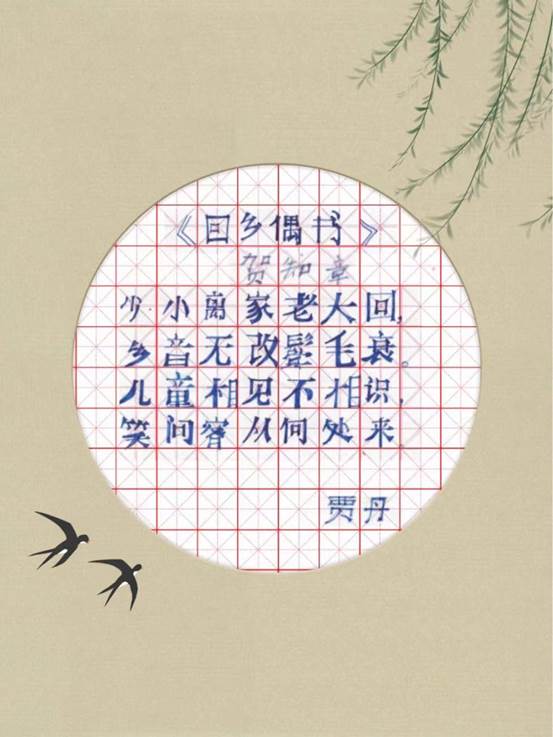 《回乡偶书》
贺知章
少小离家老大回,
乡音无改鬓毛衰。
儿童相见不相识,
笑问客从何处来
贾丹